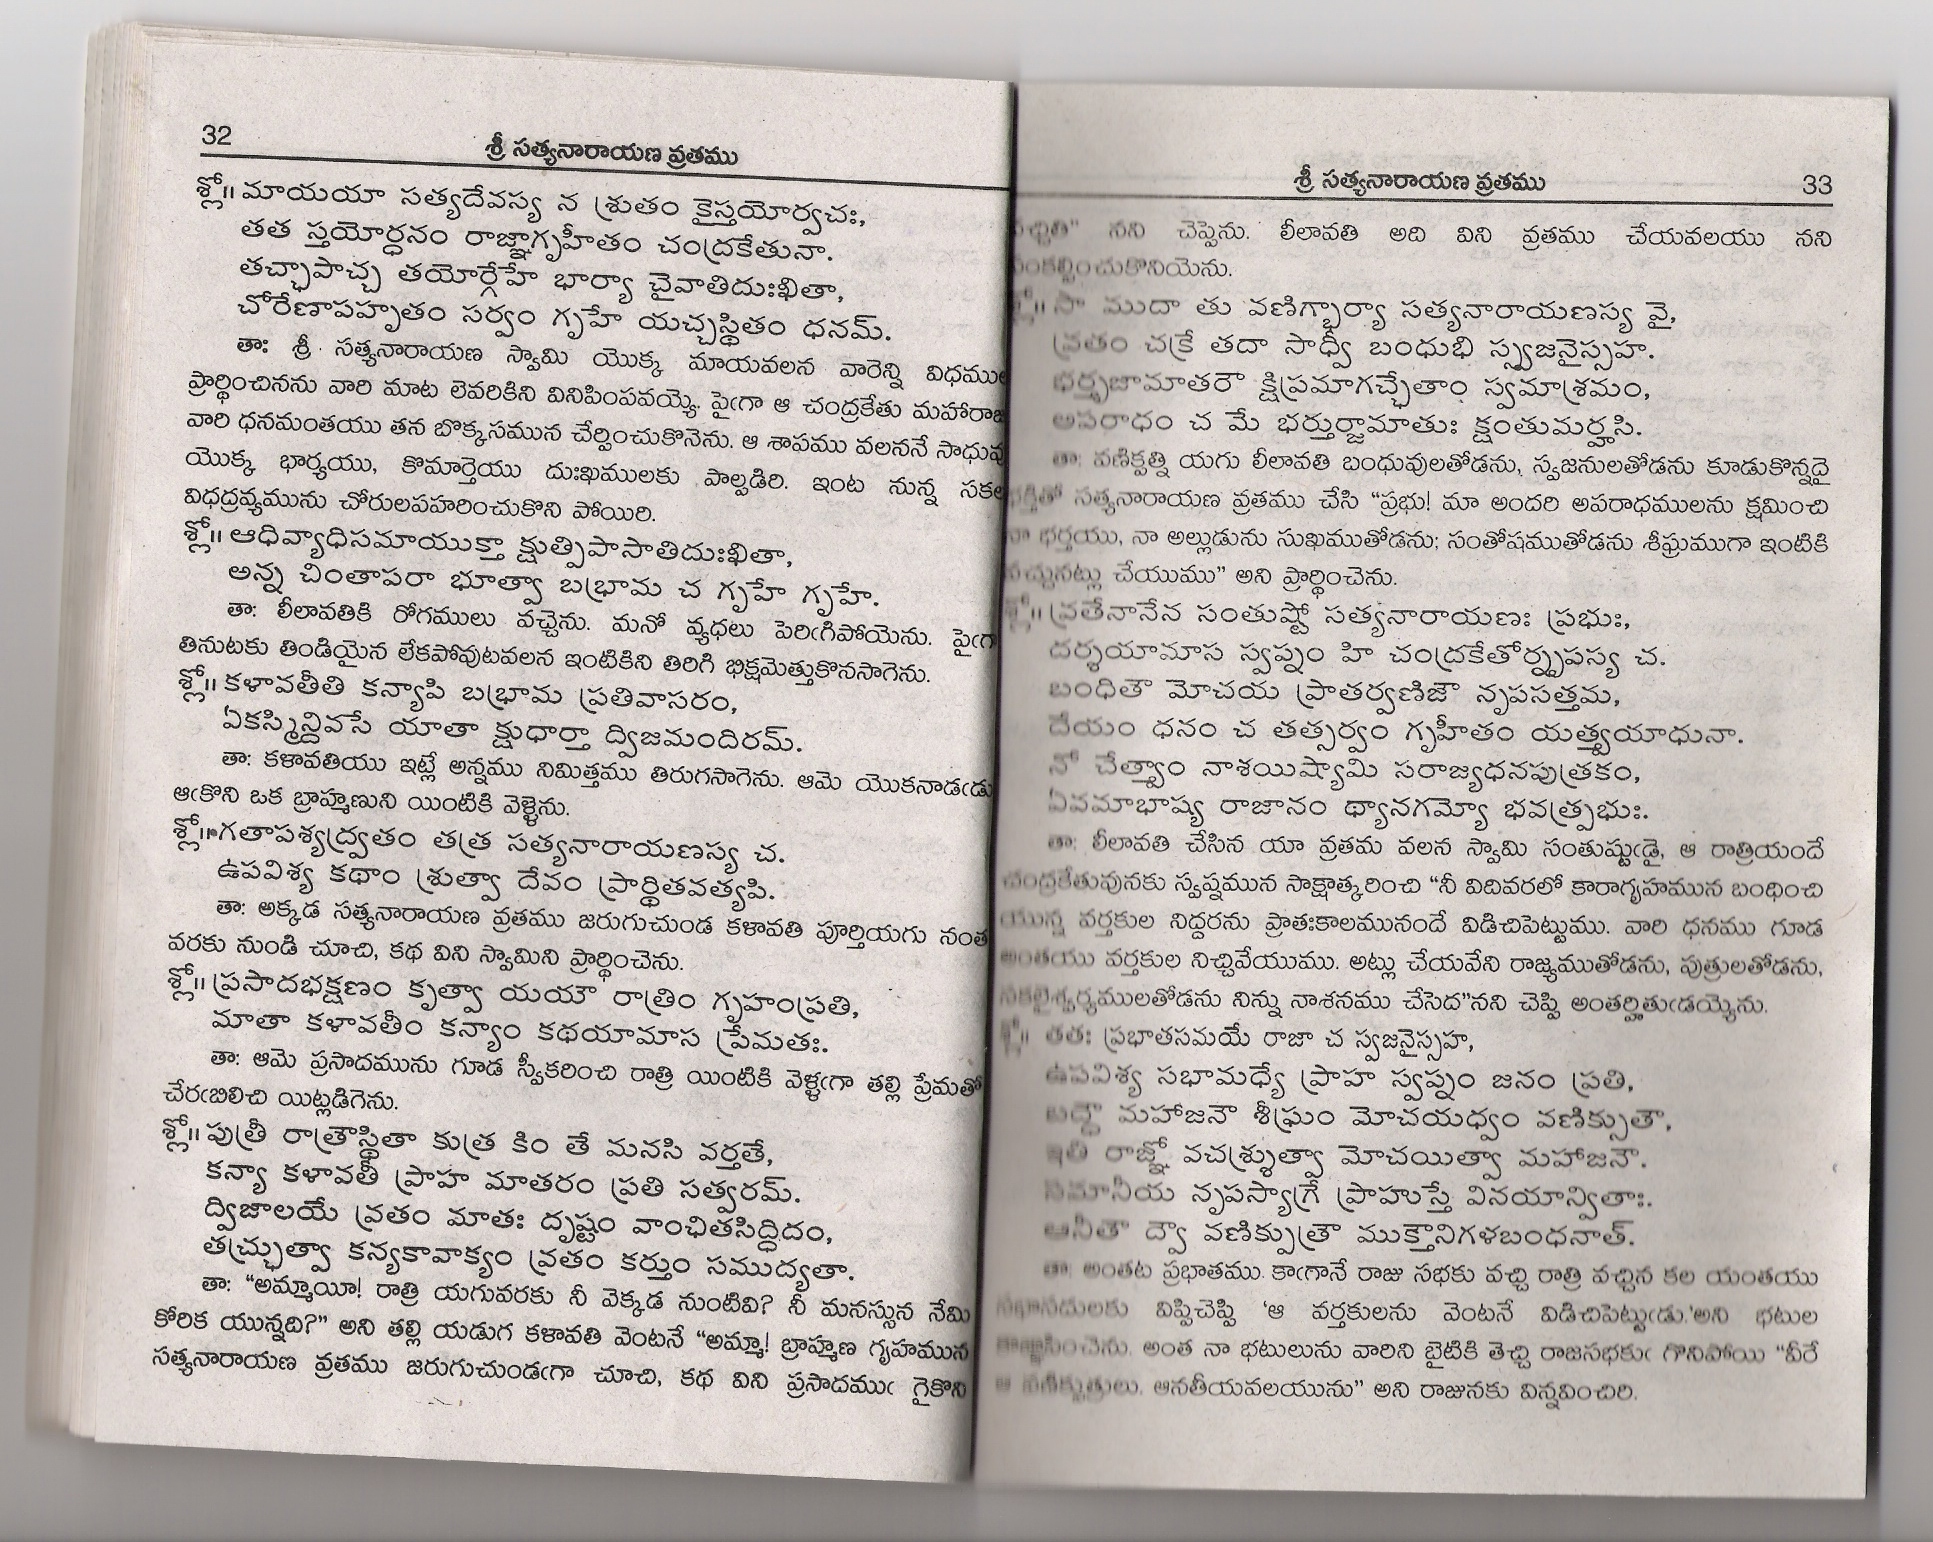 32
శ్రీ సత్యనారాయణ వ్రతము
శ్లో॥ మాయయా సత్యదేవస్య న శ్రుతం కైస్తయోర్వచః,
తత స్తయోర్ధనం రాజ్ఞాగృహీతం చంద్రకేతునా.
తచ్ఛాపాచ్చ తయోర్గేహే భార్యా చైవాతిదుఃఖితా,
చోరేణాపహృతం సర్వం గృహే యచ్చస్థితం ధనమ్.
తాః శ్రీ సత్యనారాయణ స్వామి యొక్క మాయవలన వారెన్ని విధముల
ప్రార్థించినను వారి మాట లెవరికిని వినిపింపవయ్యె. పైఁగా ఆ చంద్రకేతు మహారాజు
వారి ధనమంతయు తన బొక్కసమున చేర్పించుకొనెను. ఆ శాపము వలననే సాధువు
యొక్క భార్యయు, కొమార్తెయు దుఃఖములకు పాల్పడిరి. ఇంట నున్న సకల
విధద్రవ్యమును చోరులపహరించుకొని పోయిరి.
శ్లో॥ ఆధివ్యాధిసమాయుక్తా క్షుత్పిపాసాతిదుఃఖితా,
అన్న చింతాపరా భూత్వా బభ్రామ చ గృహే గృహే.
తా: లీలావతికి రోగములు వచ్చెను. మనో వ్యధలు పెరిఁగిపోయెను. పైఁగా
తినుటకు తిండియైన లేకపోవుటవలన ఇంటికిని తిరిగి భిక్షమెత్తుకొనసాగెను.
శ్లో॥ కళావతీతి కన్యాపి బభ్రామ ప్రతివాసరం,
ఏకస్మిన్దివసే యాతా క్షుధార్తా ద్విజమందిరమ్.
తా: కళావతియు ఇట్లే అన్నము నిమిత్తము తిరుగసాగెను. ఆమె యొకనాడఁడు
ఆఁకొని ఒక బ్రాహ్మణుని యింటికి వెళ్ళెను.
శ్లో॥ గతాపశ్యద్ర్వతం తత్ర సత్యనారాయణస్య చ.
ఉపవిశ్య కథాం శ్రుత్వా దేవం ప్రార్థితవత్యపి.
తా: అక్కడ సత్యనారాయణ వ్రతము జరుగుచుండ కళావతి పూర్తియగు నంత
వరకు నుండి చూచి, కథ విని స్వామిని ప్రార్థించెను.
శ్లో॥ ప్రసాదభక్షణం కృత్వా యయౌ రాత్రిం గృహంప్రతి,
మాతా కళావతీం కన్యాం కథయామాస ప్రేమతః.
తా: ఆమె ప్రసాదమును గూడ స్వీకరించి రాత్రి యింటికి వెళ్ళఁగా తల్లి ప్రేమతో
చేరఁబిలిచి యిట్లడిగెను.
శ్లో॥ పుత్రీ రాత్రౌస్థితా కుత్ర కిం తే మనసి వర్తతే,
కన్యా కళావతీ ప్రాహ మాతరం ప్రతి సత్వరమ్.
ద్విజాలయే వ్రతం మాతః దృష్టం వాంఛితసిద్ధిదం,
తచ్ఛ్రుత్వా కన్యకావాక్యం వ్రతం కర్తుం సముద్యతా.
తా: “అమ్మాయీ! రాత్రి యగువరకు నీ వెక్కడ నుంటివి? నీ మనస్సున నేమి
కోరిక యున్నది?” అని తల్లి యడుగ కళావతి వెంటనే “అమ్మా! బ్రాహ్మణ గృహమున
సత్యనారాయణ వ్రతము జరుగుచుండఁగా చూచి, కథ విని ప్రసాదముఁ గైకొని
శ్రీ సత్యనారాయణ వ్రతము
33
నని చెప్పెను. లీలావతి అది విని వ్రతము చేయవలయు నని
సంకల్పించుకొనియెను.
శ్లో॥ సా ముదా తు వణిగ్భార్యా సత్యనారాయణస్య వై,
వ్రతం చక్రే తదా సాధ్వీ బంధుభి స్స్వజనైస్సహ.
భర్తృజామాతరౌ క్షిప్రమాగచ్ఛేతాం స్వమాశ్రమం,
అపరాధం చ మే భర్తుర్జామాతుః క్షంతుమర్హసి.
తా: వణిక్పత్ని యగు లీలావతి బంధువులతోడను, స్వజనులతోడను కూడుకొన్నదై
భక్తితో సత్యనారాయణ వ్రతము చేసి “ప్రభు! మా అందరి అపరాధములను క్షమించి
నా భర్తయు, నా అల్లుడును సుఖముతోడను; సంతోషముతోడను శీఘ్రముగా ఇంటికి
వచ్చునట్లు చేయుము” అని ప్రార్థించెను.
శ్లో॥ వ్రతేనానేన సంతుష్టో సత్యనారాయణః ప్రభుః,
దర్శయామాస స్వప్నం హి చంద్రకేతోర్నృపస్య చ.
బంధితౌ మోచయ ప్రాతర్వణిజౌ నృపసత్తమ,
దేయం ధనం చ తత్సర్వం గృహీతం యత్త్వయాధునా.
నో చేత్త్వాం నాశయిష్యామి సరాజ్యధనపుత్రకం,
ఏవమాభాష్య రాజానం థ్యానగమ్యో భవత్ప్రభుః.
తా: లీలావతి చేసిన యా వ్రతమ వలన స్వామి సంతుష్టుఁడై, ఆ రాత్రియందే
చంద్రకేతువునకు స్వప్నమున సాక్షాత్కరించి “నీ విదివరలో కారాగృహమున బంధించి
యున్న వర్తకుల నిద్దరను ప్రాతఃకాలమునందే విడిచిపెట్టుము. వారి ధనము గూడ
అంతయు వర్తకుల నిచ్చివేయుము. అట్లు చేయవేని రాజ్యముతోడను, పుత్రులతోడను,
సకలైశ్వర్యములతోడను నిన్ను నాశనము చేసెద”నని చెప్పి అంతర్హితుఁడయ్యెను.
శ్లో॥ తతః ప్రభాతసమయే రాజా చ స్వజనైస్సహ,
ఉపవిశ్య సభామధ్యే ప్రాహ స్వప్నం జనం ప్రతి,
బద్ధౌ మహాజనౌ శీఘ్రం మోచయధ్వం వణిక్సుతౌ,
ఇతి రాజ్ఞో వచశ్శ్రుత్వా మోచయిత్వా మహాజనౌ.
సమానీయ నృపస్యాగ్రే ప్రాహుస్తే వినయాన్వితాః.
ఆనీతౌ ద్వౌ వణిక్పుత్రౌ ముక్తౌనిగళబంధనాత్.
తా: అంతట ప్రభాతము. కాఁగానే రాజు సభకు వచ్చి రాత్రి వచ్చిన కల యంతయు
సభాసదులకు విప్పిచెప్పి ‘ఆ వర్తకులను వెంటనే విడిచిపెట్టుఁడు.’అని భటుల
కాజ్ఞాపించెను. అంత నా భటులును వారిని బైటికి తెచ్చి రాజసభకుఁ గొనిపోయి “వీరే
ఆ వణిక్పుత్రులు. ఆనతీయవలయును” అని రాజునకు విన్నవించిరి.